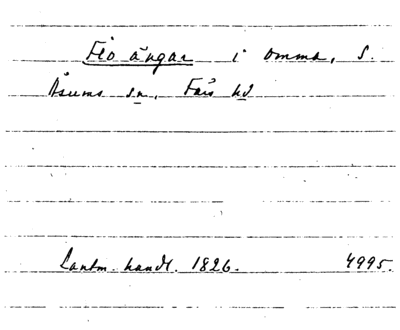 Flo ängar i Omma, S.
Åsums sn. Färs hd
Lantm. handl. 1826. 4995.